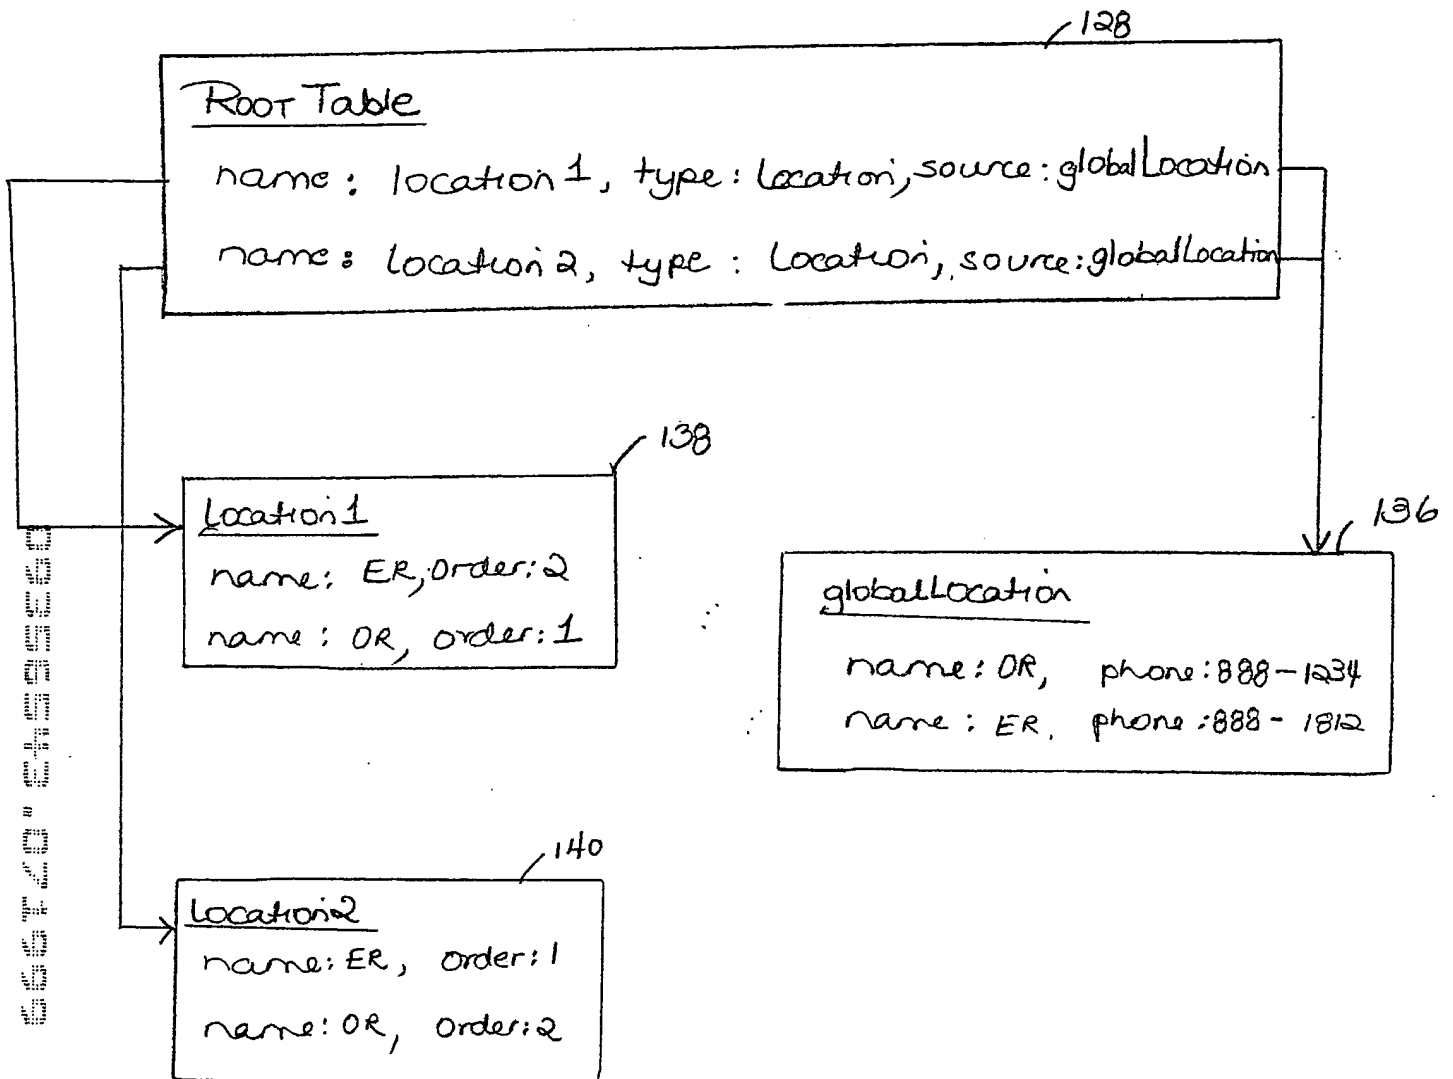 128
Root Table
name: location1, type: Location, source: globalLocation
name: location2, type: Location, source: globalLocation
138
Location1
name: ER, Order: 2
name: OR, order: 1
136
globalLocation
name: OR, phone: 888-1234
name: ER, phone: 888-1812
140
Location2
name: ER, order: 1
name: OR, Order: 2